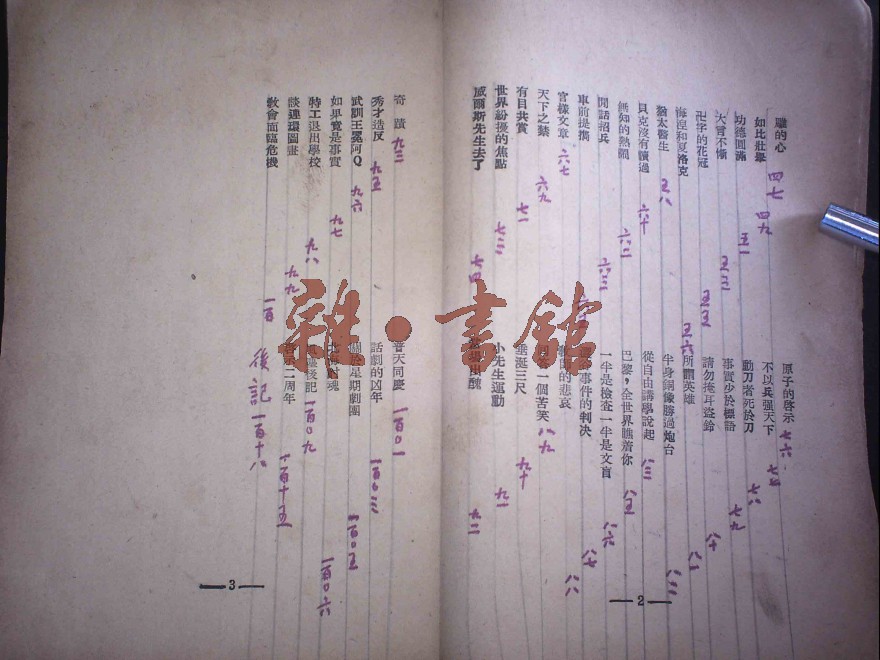 雕的心 四七
如比壯舉 四九
功德圓滿 五一
大言不慚 五三
卍字的花冠 五五
海涅和夏洛克 五六
猶太醫生 五八
貝克沒有讀過 六十
無知的熱鬧 六二
閒話招兵 六三
車前提携
官樣文章 六七
天下之禁 六九
有目共賞 七一
世界紛擾的焦點 七三
威爾斯先生去了 七四
原子的啓示 七六
不以兵强天下 七七
動刀者死於刀 七八
事實少於標語 七九
請勿掩耳盗鈴 八十
所謂英雄 八一
半身銅像勝過炮台 八二
從自由講學說起 八三
巴黎，全世界瞧着你 八五
一半是檢查一半是文盲 八六
事件的判决 八七
的悲哀 八八
一個苦笑 八九
垂涎三尺 九十
小先生運動 九一
出醜 九二
2
奇蹟 九三
秀才造反 九五
武訓王冕阿Q 九六
如果竟是事實 九七
特工退出學校 九八
談連環圖畫 九九
教會面臨危機 一百
普天同慶 一百〇一
話劇的凶年 一百〇三
關於星期劇團 一百〇五
一百〇六
後記 一百〇九
二周年 一百十五
後記 一百十八
3
雜·書館